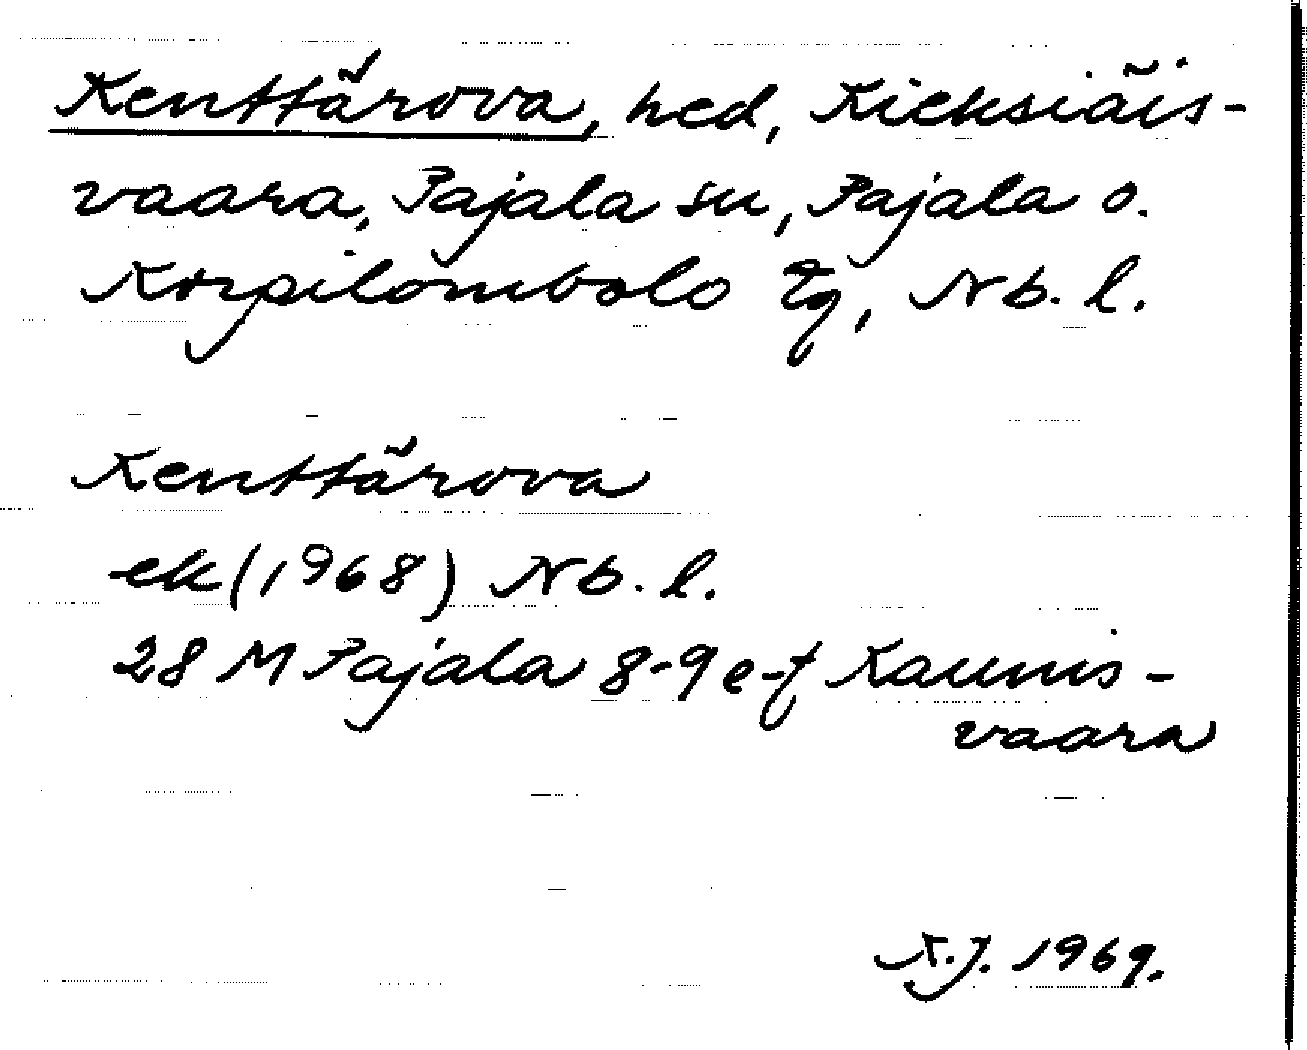 Kenttärova, hed, Kieksiäis-
vaara, Pajala sn, Pajala o.
Korpilombolo tg, Nb. l.
Kenttärova
ek (1968) Nb. l.
28 M Pajala 8-9 e-f Kaunis-
vaara
K.J. 1969.